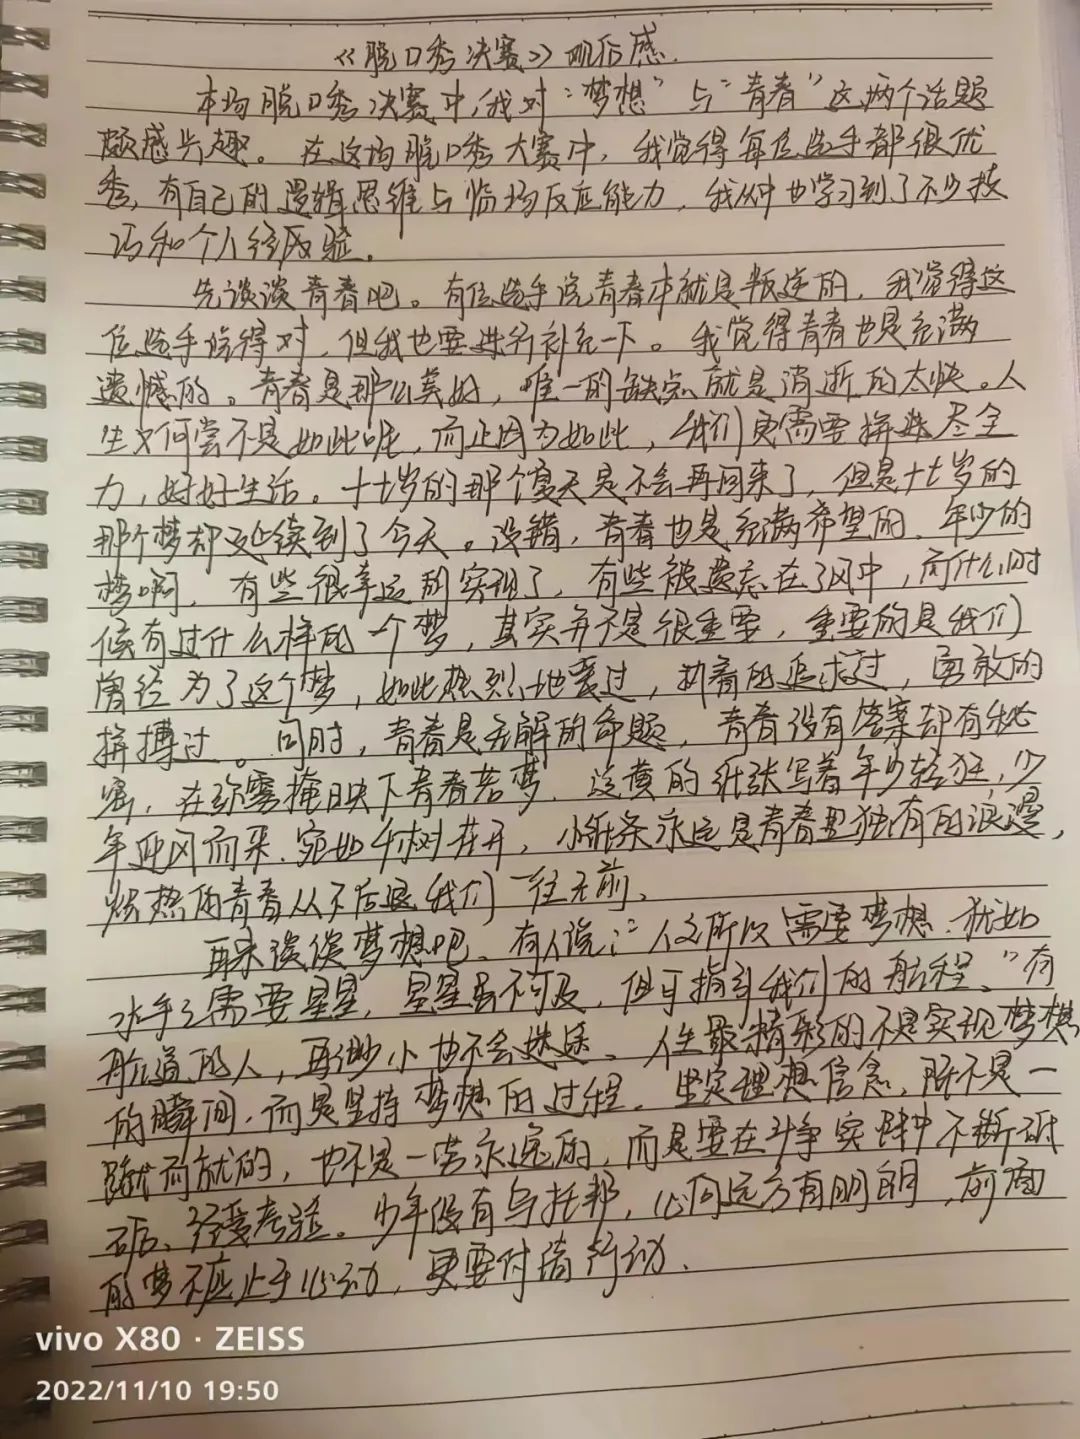 《脱口秀决赛》观后感.
本场脱口秀决赛中,我对:“梦想”与“青春”这两个话题
颇感兴趣。在这场脱口秀大赛中,我觉得每位选手都很优
秀,有自己的逻辑思维与临场反应能力,我从中也学习到了不少技
巧和个人经验。
先谈谈青春吧。有位选手说青春本就是叛逆的,我觉得这
位选手说得对,但我也要进行补充一下。我觉得青春也是充满
遗憾的。青春是那么美好,唯一的缺点就是消逝的太快。人
生又何尝不是如此呢,而正因为如此,我们更需要拼尽全
力,好好生活。十七岁的那个夏天是不会再回来了,但是十七岁的
那个梦却延续到了今天。没错,青春也是充满希望的,年少的
梦啊,有些很幸运的实现了,有些被遗忘在了风中,而什么时
候有过什么样的一个梦,其实并不是很重要,重要的是我们
曾经为了这个梦,如此热烈地爱过,执着的追求过,勇敢的
拼搏过。同时,青春是无解的命题,青春没有答案却有秘
密,在弥雾掩映下青春若梦,泛黄的纸张写着年少轻狂,少
年迎风而来,宛如千树花开,小纸条永远是青春里独有的浪漫,
炽热的青春从不后退我们一往无前、
再来谈谈梦想吧、有人说:“人之所以需要梦想,犹如
水手之需要星星”,星星虽不可及,但可指引我们的航程、”有
航道的人,再渺小也不会迷途、人生最精彩的不是实现梦想
的瞬间,而是坚持梦想的过程,坚定理想信念,既不是一
蹴而就的,也不是一劳永逸的,而是要在斗争实践中不断砥
砺、经受考验。少年没有乌托邦,心向远方有明朗,前面
的梦不应止于心动,更要付诸行动、
vivo X80 · ZEISS
2022/11/10 19:50